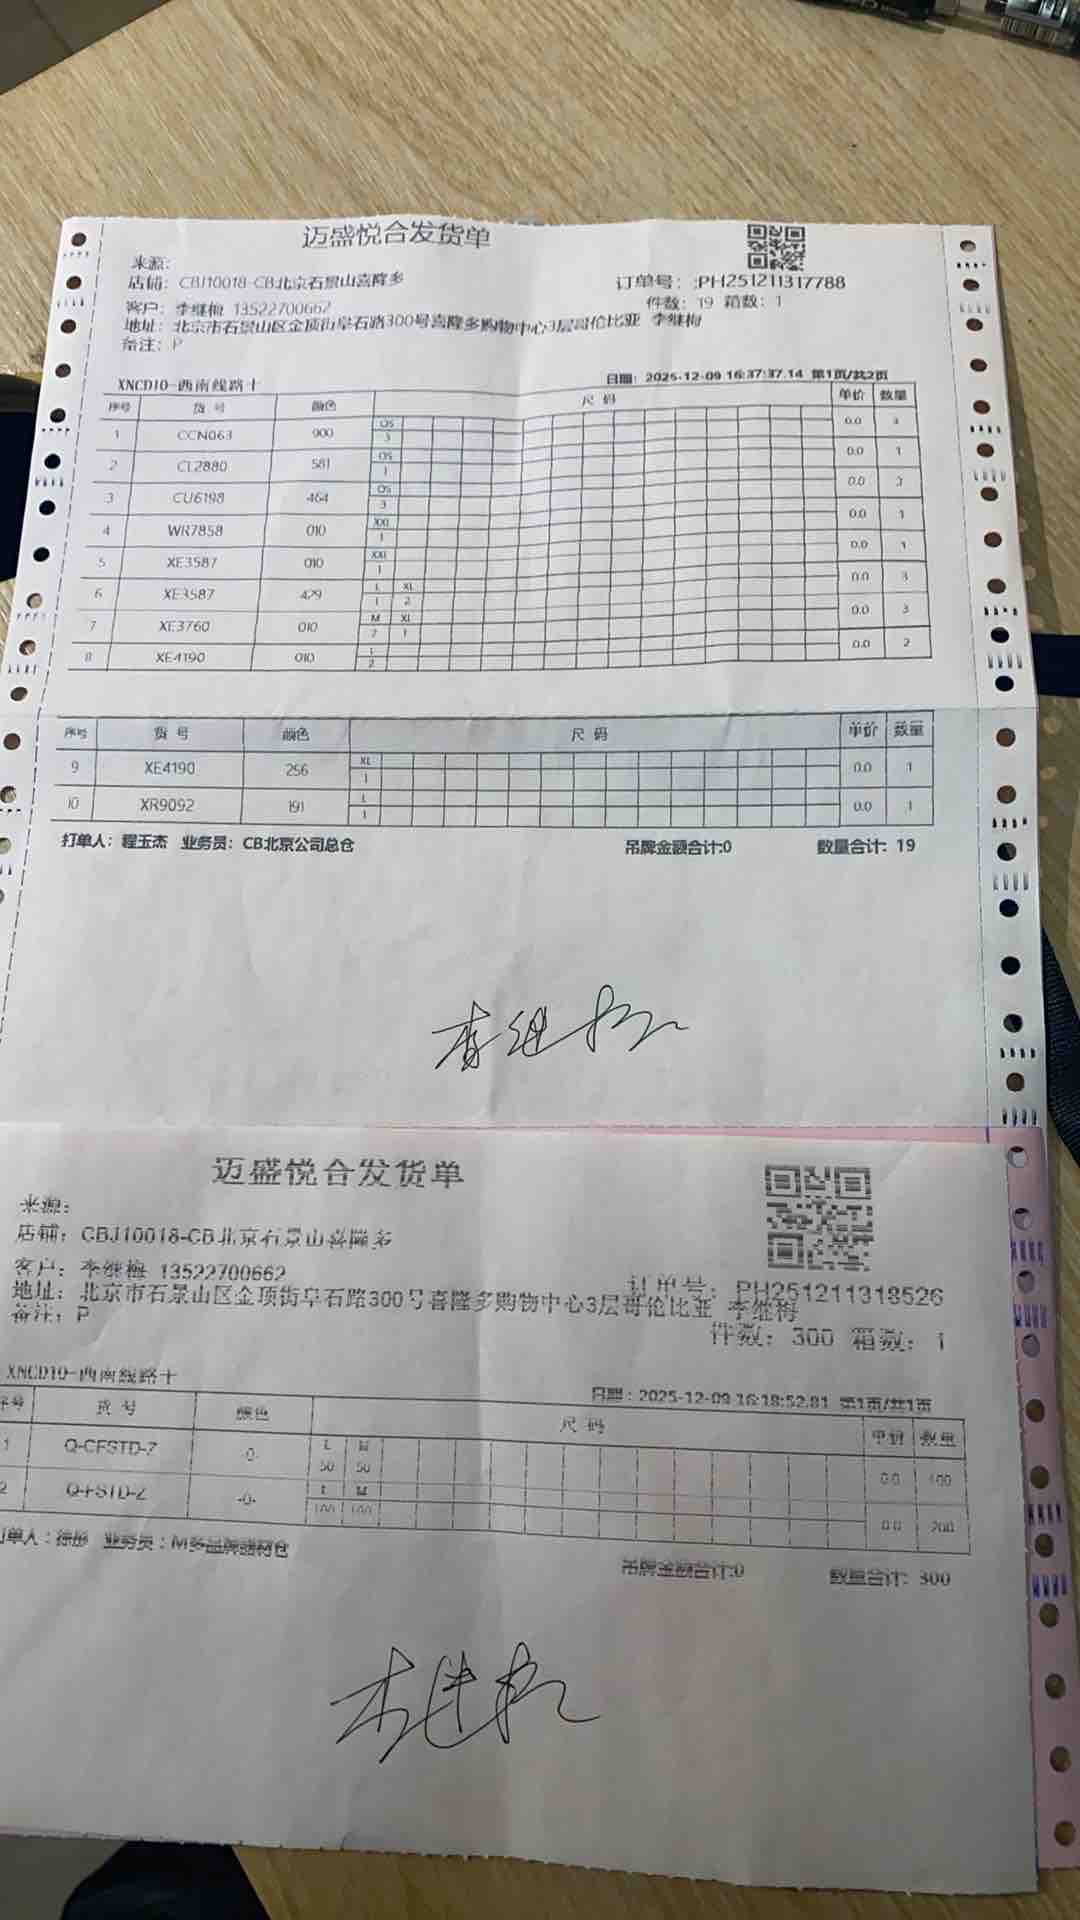 迈盛悦合发货单
来源:
店铺: CBJ10018-CB北京石景山喜隆多
订单号: :PH251211317788
客户: 李继梅 13522700662
件数: 19 箱数: 1
地址: 北京市石景山区金顶街阜石路300号喜隆多购物中心3层哥伦比亚 李继梅
备注: P
XNCD10-西南线路十
日期: 2025-12-09 16:37:37.14 第1页/共2页
序号 货号 颜色 尺码 单价 数量
1 CCN063 900 OS 3 0.0 3
2 CL2880 581 OS 1 0.0 1
3 CU6198 464 OS 3 0.0 3
4 WR7858 010 XXL 1 0.0 1
5 XE3587 010 XXL 1 0.0 1
6 XE3587 429 L XL 1 2 0.0 3
7 XE3760 010 M XL 2 1 0.0 3
8 XE4190 010 L 2 0.0 2
序号 货号 颜色 尺码 单价 数量
9 XE4190 256 XL 1 0.0 1
10 XR9092 191 L 1 0.0 1
打单人: 程玉杰 业务员: CB北京公司总仓 吊牌金额合计:0 数量合计: 19
李继梅
迈盛悦合发货单
来源:
店铺: CBJ10018-CB北京石景山喜隆多
客户: 李继梅 13522700662
订单号: PH251211318526
地址: 北京市石景山区金顶街阜石路300号喜隆多购物中心3层哥伦比亚 李继梅
备注: P
件数: 300 箱数: 1
XNCD10-西南线路十
日期: 2025-12-09 16:18:52.81 第1页/共1页
序号 货号 颜色 尺码 单价 数量
1 Q-CFSTD-Z -0- L M 50 50 0.0 100
2 Q-FSTD-Z -0- L M 100 100 0.0 200
打单人: 业务员: M多品牌器材仓
吊牌金额合计:0 数量合计: 300
李继梅